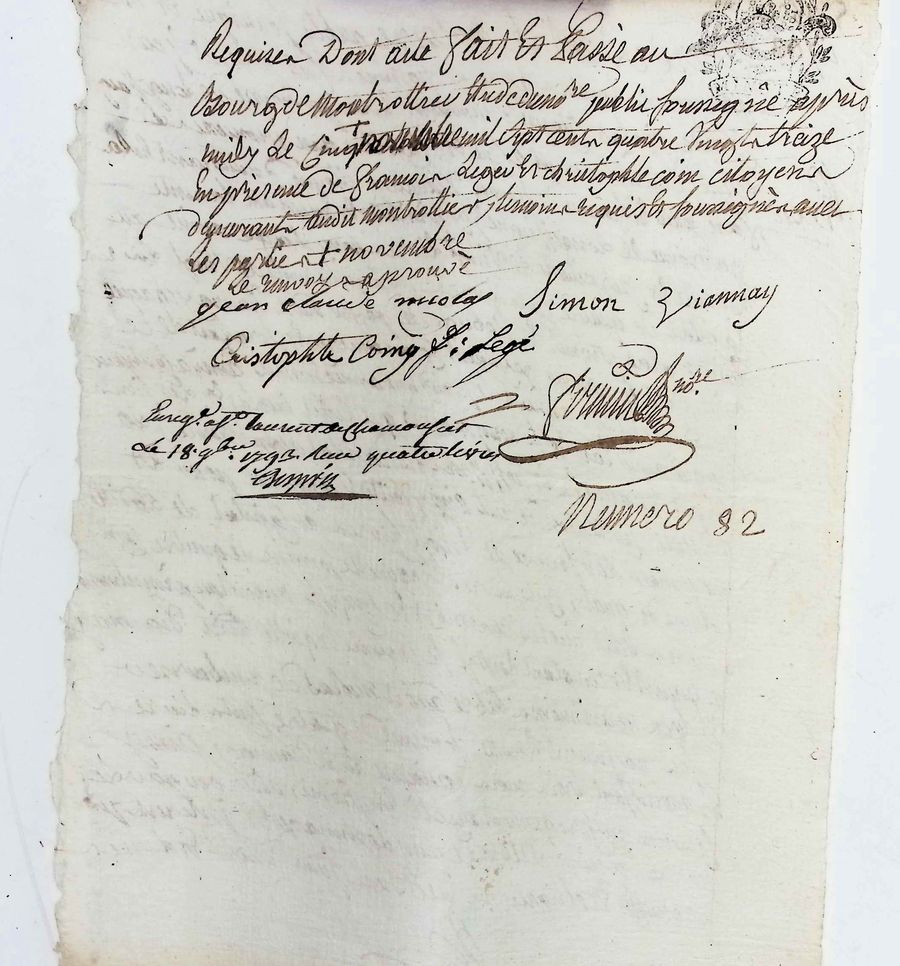 Requises Dont acte fait Et Passé au
Bourg de Montrottier Etude du no.re public soussigné après
midy Le Cinq + mil Sept cent quatre Vingts treize
En présence de francois Leger Et christophle coin citoyens
demeurants audit montrottier temoins requis Et soussignés avec
les parties + novembre
Le renvoy aprouvé
jean claude nicolas Simon Viannay
Cristophle Coing f.s: Legé
no.re
Enreg.é a S.t Laurent de chamousset
Le 18. 9bre. 1793. Reçu quatre livres
Numero 82